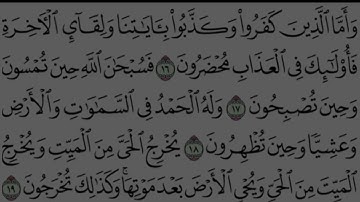 وَأَمَّا الَّذِينَ كَفَرُوا۟ وَكَذَّبُوا۟ بِـَٔايَـٰتِنَا وَلِقَآئِ الْـَٔاخِرَةِ
فَأُو۟لَـٰٓئِكَ فِى الْعَذَابِ مُحْضَرُونَ ١٦ فَسُبْحَـٰنَ اللَّهِ حِينَ تُمْسُونَ
وَحِينَ تُصْبِحُونَ ١٧ وَلَهُ الْحَمْدُ فِى السَّمَـٰوَٰتِ وَالْأَرْضِ
وَعَشِيًّا وَحِينَ تُظْهِرُونَ ١٨ يُخْرِجُ الْحَىَّ مِنَ الْمَيِّتِ وَيُخْرِجُ
الْمَيِّتَ مِنَ الْحَىِّ وَيُحْىِ الْأَرْضَ بَعْدَ مَوْتِهَا ۚ وَكَذَٰلِكَ تُخْرَجُونَ ١٩